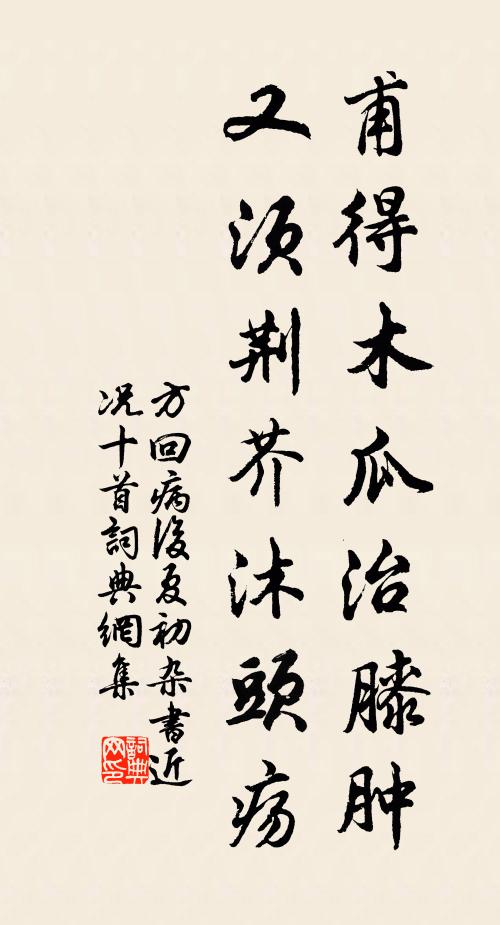 甫得木瓜治膝肿
又须荆芥沐頭疡
方回病後夏初杂書近
况十首詞典網集
詞典网印